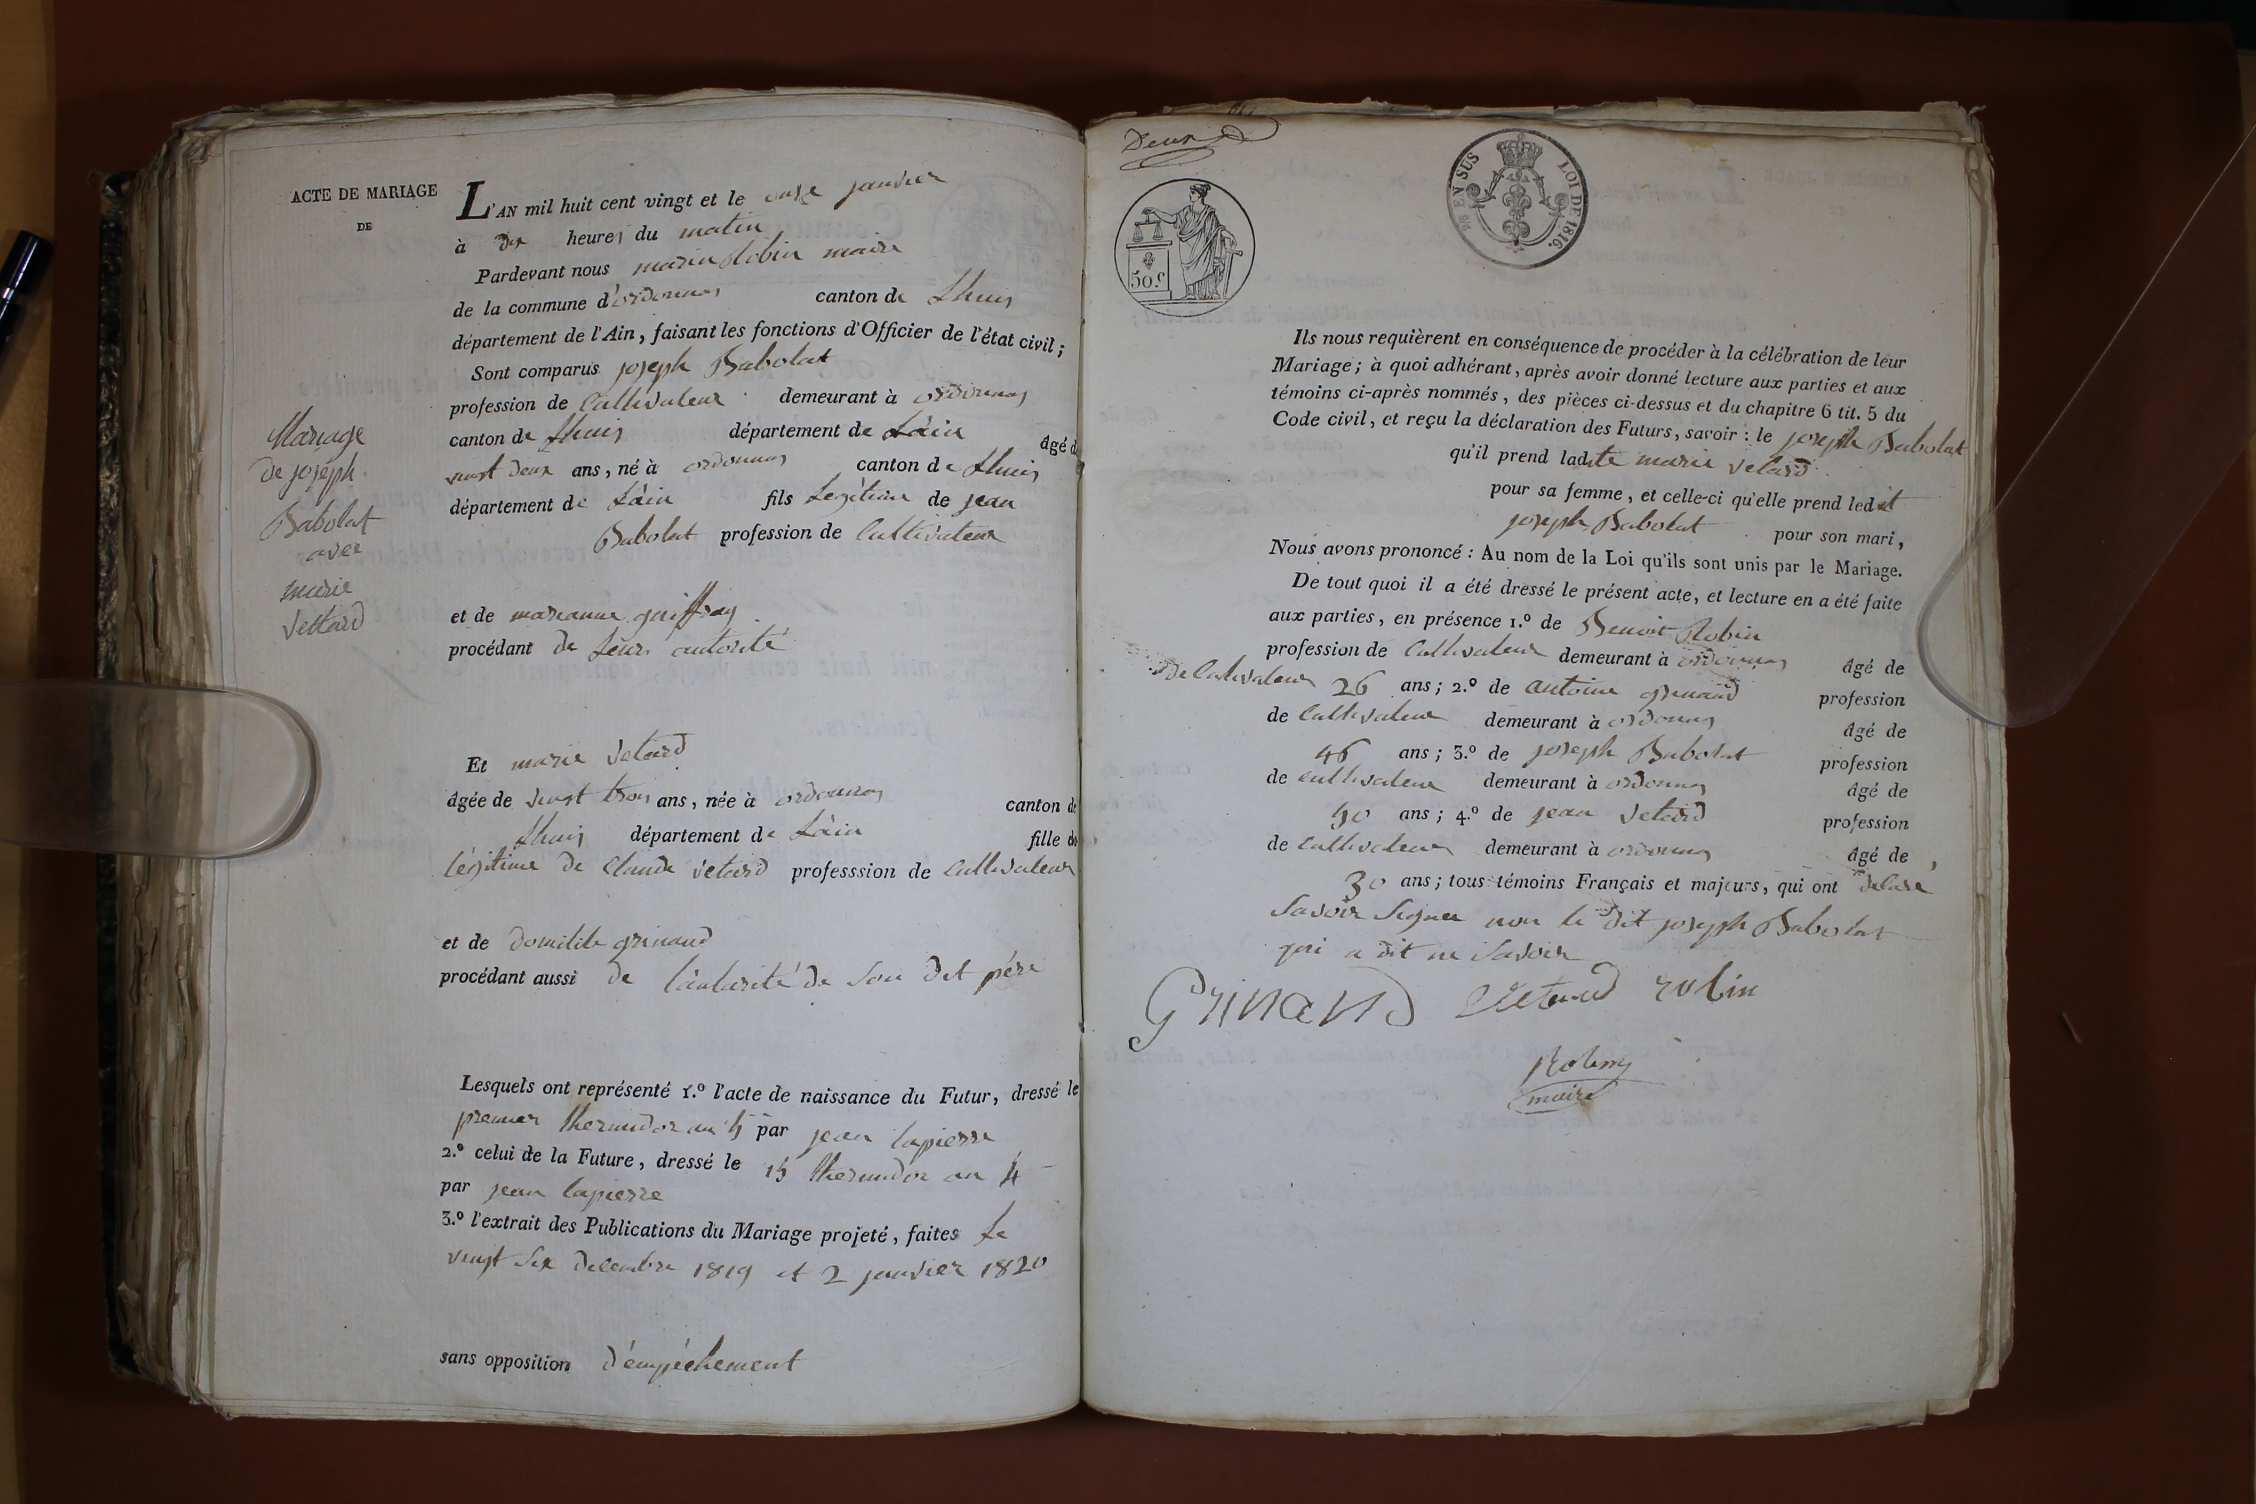 ACTE DE MARIAGE
DE
Mariage
de joseph
Babolat
avec
marie
Vettard
L'AN mil huit cent vingt et le onze janvier
à dix heures du matin
Pardevant nous marin Robin maire
de la commune d'ordonnas canton de Lhuis
département de l'Ain, faisant les fonctions d'Officier de l'état civil;
Sont comparus joseph Babolat
profession de Cultivateur demeurant à ordonnas
canton de Lhuis département de Láin âgé de
vingt deux ans, né à ordonnas canton de Lhuis
département de Láin fils Legitime de jean
Babolat profession de Cultivateur
et de marianne guiffray
procédant de Leur autorité
Et marie Vetard
âgée de vingt trois ans, née à ordonnas canton de
Lhuis département de Láin fille de
légitime de Claude Vetard professsion de Cultivateur
et de domitile grinand
procédant aussi de láutorité de Son dit père
Lesquels ont représenté 1.º l'acte de naissance du Futur, dressé le
premier thermidor an 5 par jean lapierre
2.º celui de la Future, dressé le 15 thermidor an 4
par jean lapierre
3.º l'extrait des Publications du Mariage projeté, faites Le
vingt Six decembre 1819 et 2 janvier 1820
sans opposition d'émpéchement
Deux
50 c.
EN SUS
LOI DE 1816.
Ils nous requièrent en conséquence de procéder à la célébration de leur
Mariage; à quoi adhérant, après avoir donné lecture aux parties et aux
témoins ci-après nommés, des pièces ci-dessus et du chapitre 6 tit. 5 du
Code civil, et reçu la déclaration des Futurs, savoir: le joseph Babolat
qu'il prend ladite marie Vetard
pour sa femme, et celle-ci qu'elle prend ledit
joseph Babolat pour son mari,
Nous avons prononcé: Au nom de la Loi qu'ils sont unis par le Mariage.
De tout quoi il a été dressé le présent acte, et lecture en a été faite
aux parties, en présence 1.º de Benoit Robin
profession de Cultivateur demeurant à ordonnas âgé de
de Cultivateur 26 ans; 2.º de antoine grinand profession
de Cultivateur demeurant à ordonnas âgé de
46 ans; 3.º de joseph Babolat profession
de cultivateur demeurant à ordonnas âgé de
50 ans; 4.º de jean Vetard profession
de Cultivateur demeurant à ordonnas âgé de
30 ans; tous témoins Français et majeurs, qui ont déclaré
Savoir Signer non le dit joseph Babolat
qui a dit ne Savoir
Grinand Vetard robin
Robin
maire